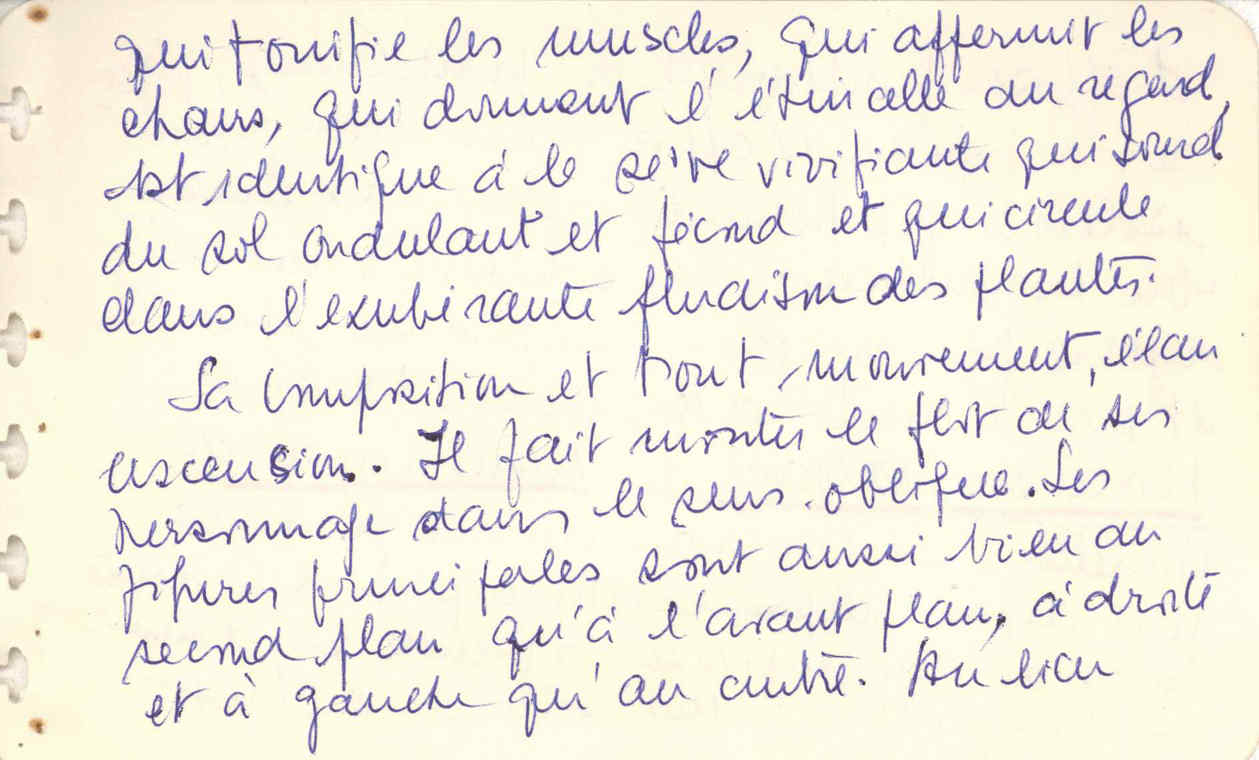 qui tonifie les muscles, qui affermit les
chairs, qui donnent l'étincelle au regard,
est identique à la sève vivifiante qui sourd
du sol ondulant et fécond et qui circule
dans l'exubérante fludison des plantes.
Sa composition et tout, mouvement, élan
ascension. Il fait monter le flot de ses
personnage dans le sens oblique. Les
figures principales sont aussi bien au
second plan qu'à l'avant plan, à droite
et à gauche qu'au centre. Au lieu